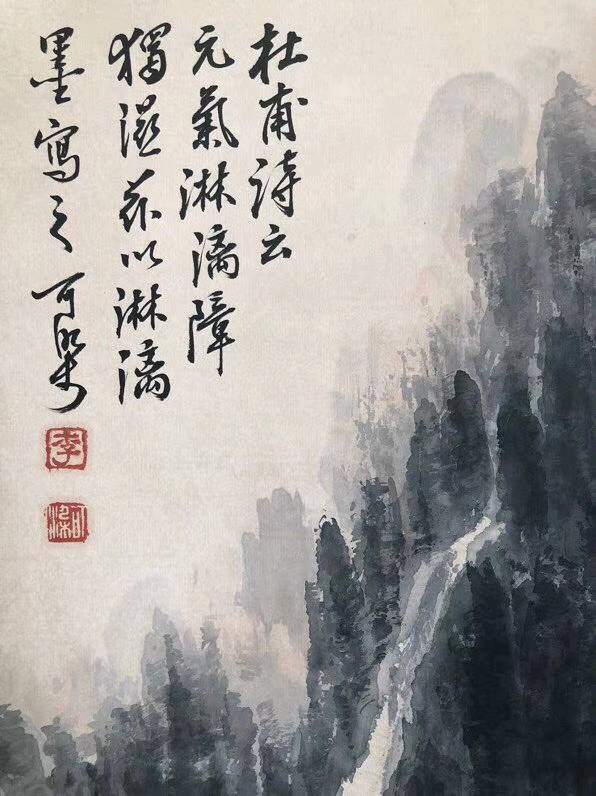 杜甫詩云
元氣淋漓障
猶濕以淋漓
墨寫之可染
李
可染